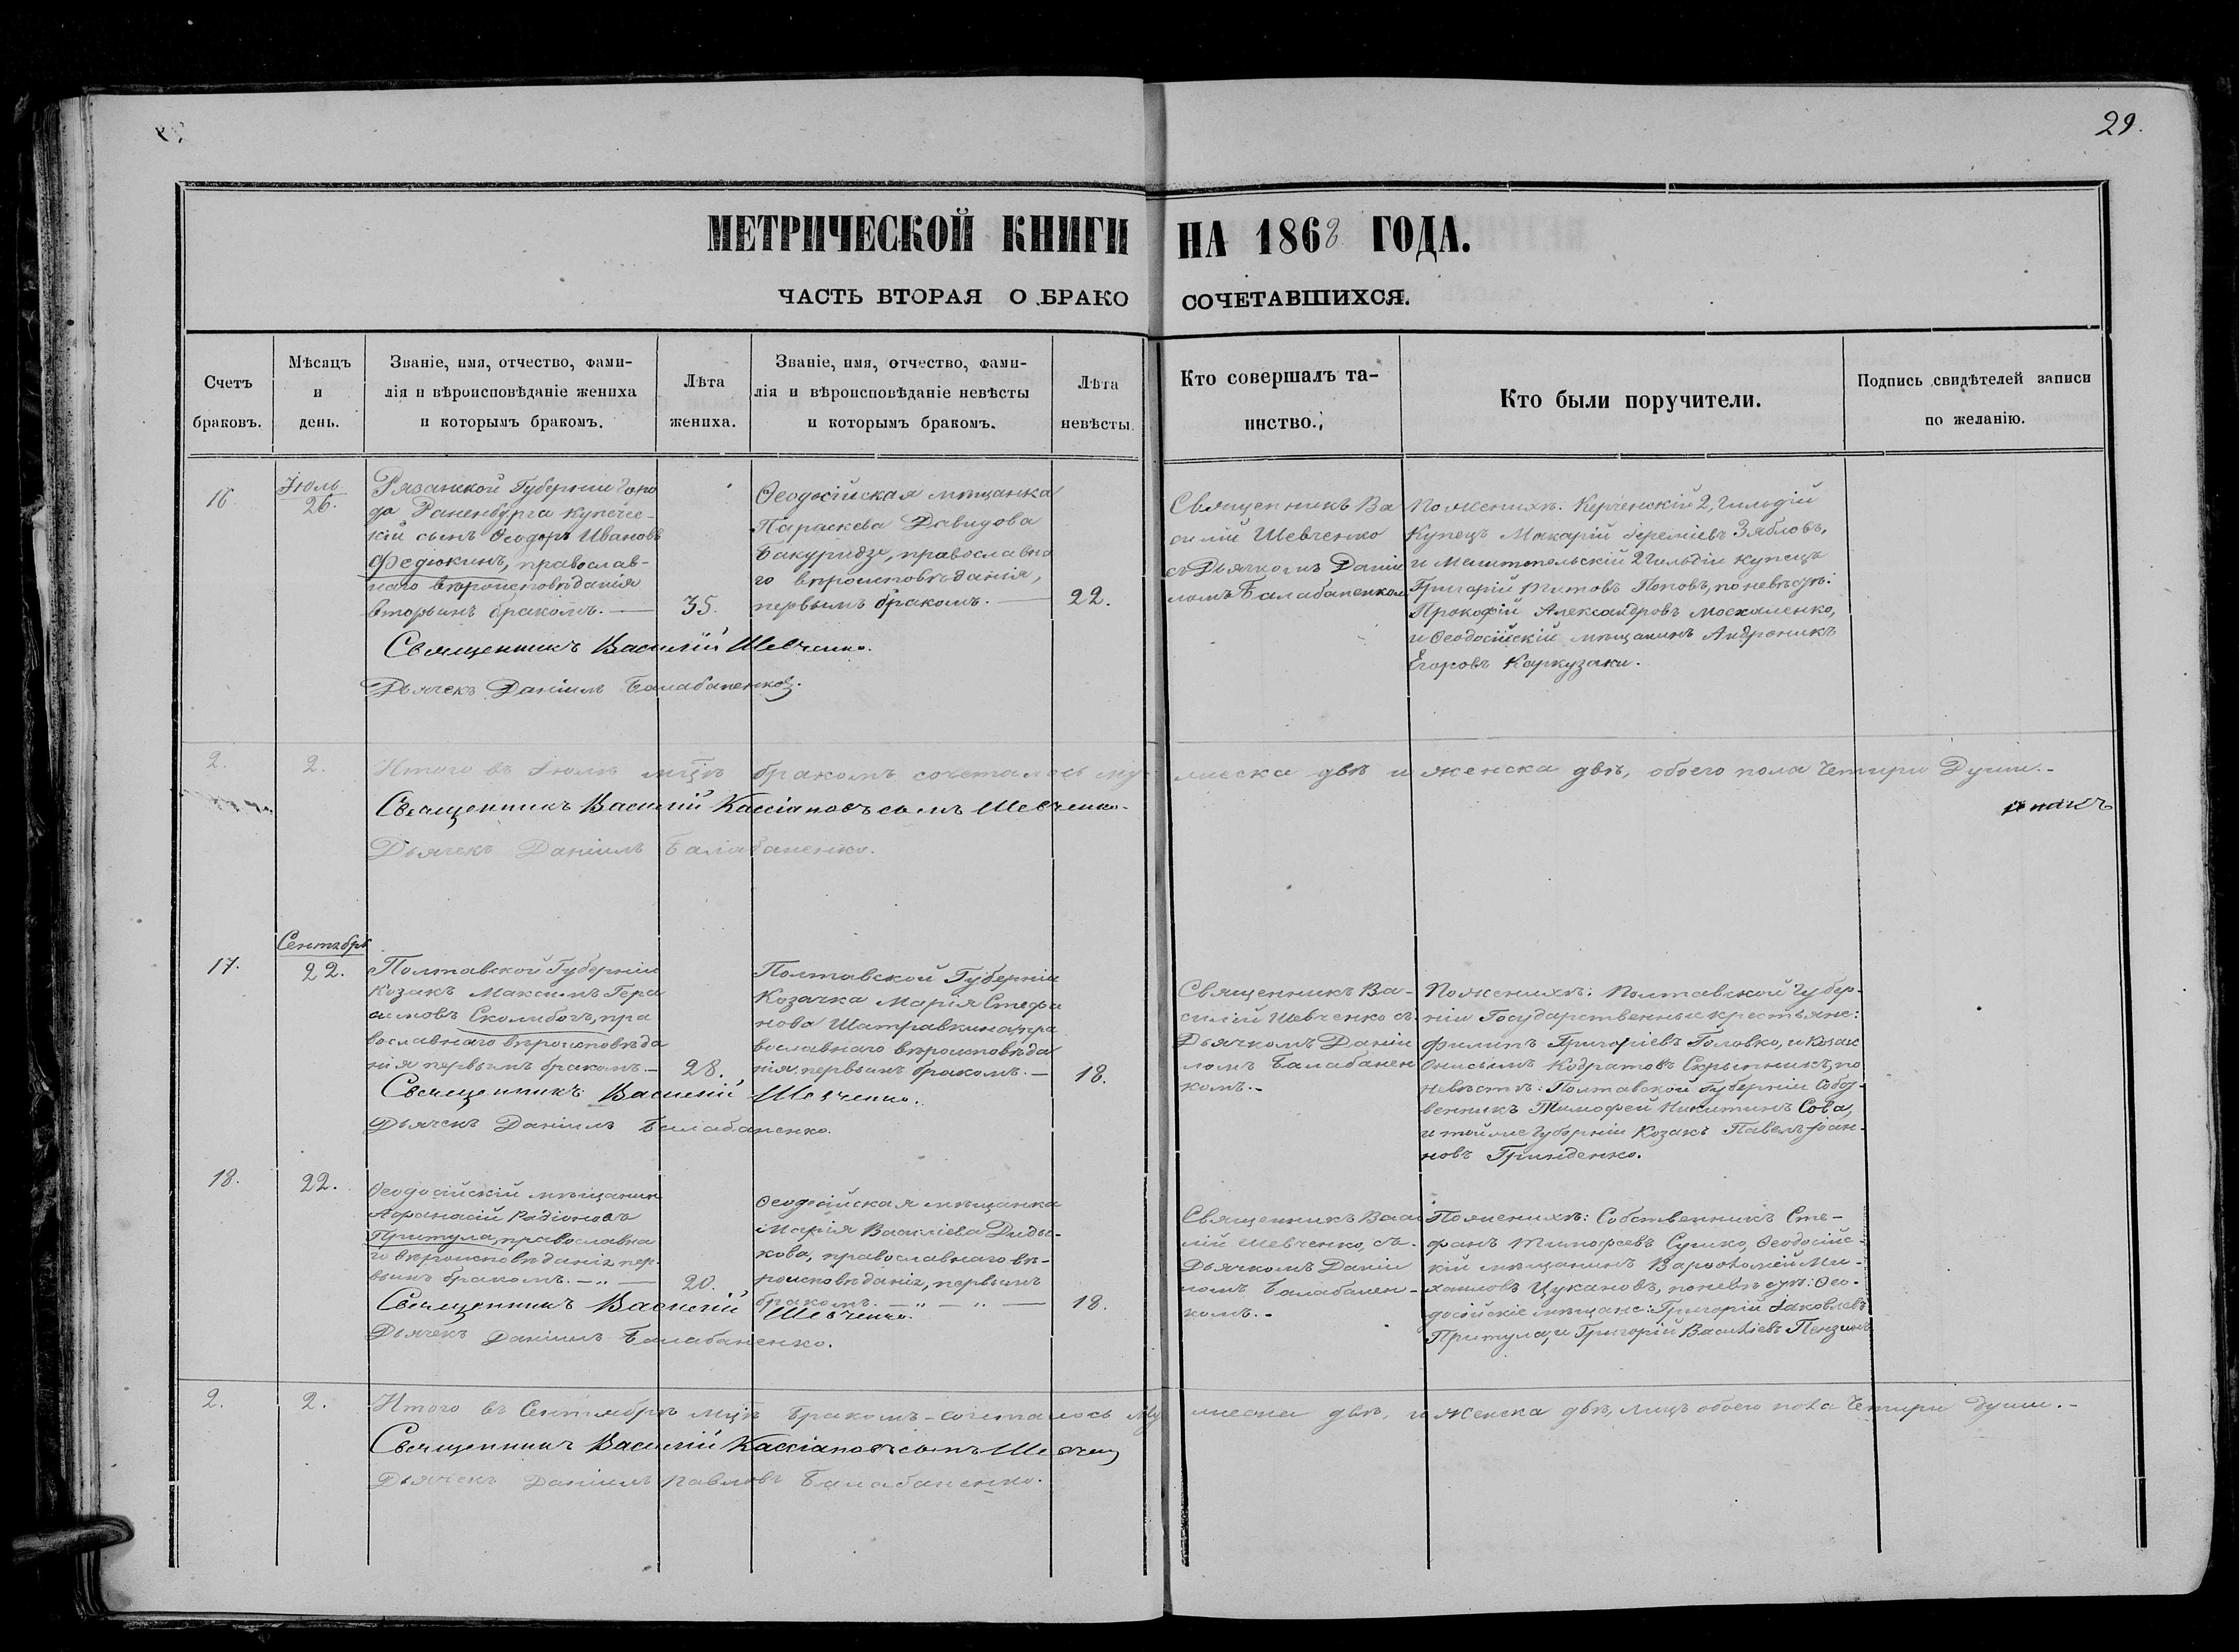 29.
МЕТРИЧЕСКОЙ КНИГИ НА 1868 ГОДА.
ЧАСТЬ ВТОРАЯ О БРАКО СОЧЕТАВШИХСЯ.
Счетъ
браковъ.
Мѣсяцъ
и
день.
Званіе, имя, отчество, фами-
лія и вѣроисповѣданіе жениха
и которымъ бракомъ.
Лѣта
жениха.
Званіе, имя, отчество, фами-
лія и вѣроисповѣданіе невѣсты
и которымъ бракомъ.
Лѣта
невѣсты.
Кто совершалъ та-
инство.
Кто были поручители.
Подпись свидѣтелей записи
по желанію.
16.
Іюль
26.
Рязанской Губерніи горо
да Раненбурга купечес-
кій сынъ Ѳеодоръ Ивановъ
Федюкинъ, православ-
наго вѣроисповѣданія
вторымъ бракомъ. —
35.
Ѳеодосійская мѣщанка
Параскева Давидова
Бакуридзе, православна
го вѣроисповѣданія,
первымъ бракомъ. —
22.
Священникъ Ва
силій Шевченко
съ Дьячкомъ Даніи
ломъ Балабаненком
По женихѣ: Керченскій 2, Гильдій
Купецъ Макарій Іереміевъ Зябловъ,
и 2 Гильдіи купецъ
Григорій Титовъ Поповъ, по невѣстѣ:
Прокофій Александровъ Москаленко,
и Ѳеодосійскій мѣщанинъ Андроникъ
Егоровъ Каркузаки.
Священникъ Василій Шевченко.
Дьячекъ Даніилъ Балабаненко.
2.
2.
Итого въ Іюлѣ мцѣ бракомъ сочеталось му-
жеска двѣ и женска двѣ, обоего пола Четыри Души.-
Священникъ Василій Кассіановъ сынъ Шевченко.
Дьячекъ Даніилъ Балабаненко.
17.
Сентябрь
22.
Полтавской Губерніи
Козакъ Максимъ Гера
симовъ Сколибогъ, пра
вославнаго вѣроисповѣда
нія первымъ бракомъ.—
28.
Полтавской Губерніи
Козачка Марія Стефа
нова Шатравкина, пра
вославнаго вѣроисповѣда
нія, первымъ бракомъ.—
18.
Священникъ Ва-
силій Шевченко съ
Дьячкомъ Даніи
ломъ Балабанен
комъ.-
По женихѣ: Полтавской Губер-
ніи Государственные крестьяне:
Филипъ Григоріевъ Головко, и Козак
Онисимъ Кодратовъ Скрыпникъ, по
невѣстѣ: Полтавской Губерніи Собст-
венникъ Тимофей Никитинъ Сова,
и тойже Губерніи Козакъ Павелъ Іоан-
новъ Гринденко.
Священникъ Василій Шевченко.
Дьячекъ Даніилъ Балабаненко.
18.
22.
Ѳеодосійскій мѣщанин
Афанасій Радіоновъ
Притула, православна
го вѣроисповѣданія пер
вымъ бракомъ. — „ —
20.
Ѳеодосійская мѣщанка
Марія Василіева Диды-
кова, православнаго вѣ-
роисповѣданія, первымъ
бракомъ. — „ — „ —
18.
Священникъ Васи
лій Шевченко, съ
Дьячкомъ Даніи
ломъ Балабанен-
комъ.-
По женихѣ: Собственникъ Сте-
фанъ Тимофеевъ Сушко, Ѳеодосійс-
кій мѣщанинъ Варѳоломей Ми-
хаиловъ Цукановъ, по невѣстѣ: Ѳео-
досійскіе мѣщане: Григорій Іаковлевъ
Притула, и Григорій Василіевъ Пензинъ
Священникъ Василій Шевченко.
Дьячекъ Даніилъ Балабаненко.
2.
2.
Итого въ Сентябрѣ мцѣ бракомъ-сочеталось му
жеска двѣ, и женска двѣ, лицъ обоего пола Четыри души.-
Священникъ Василій Кассіановъ сынъ Шевчен
Дьячекъ Даніилъ Павловъ Балабаненко.